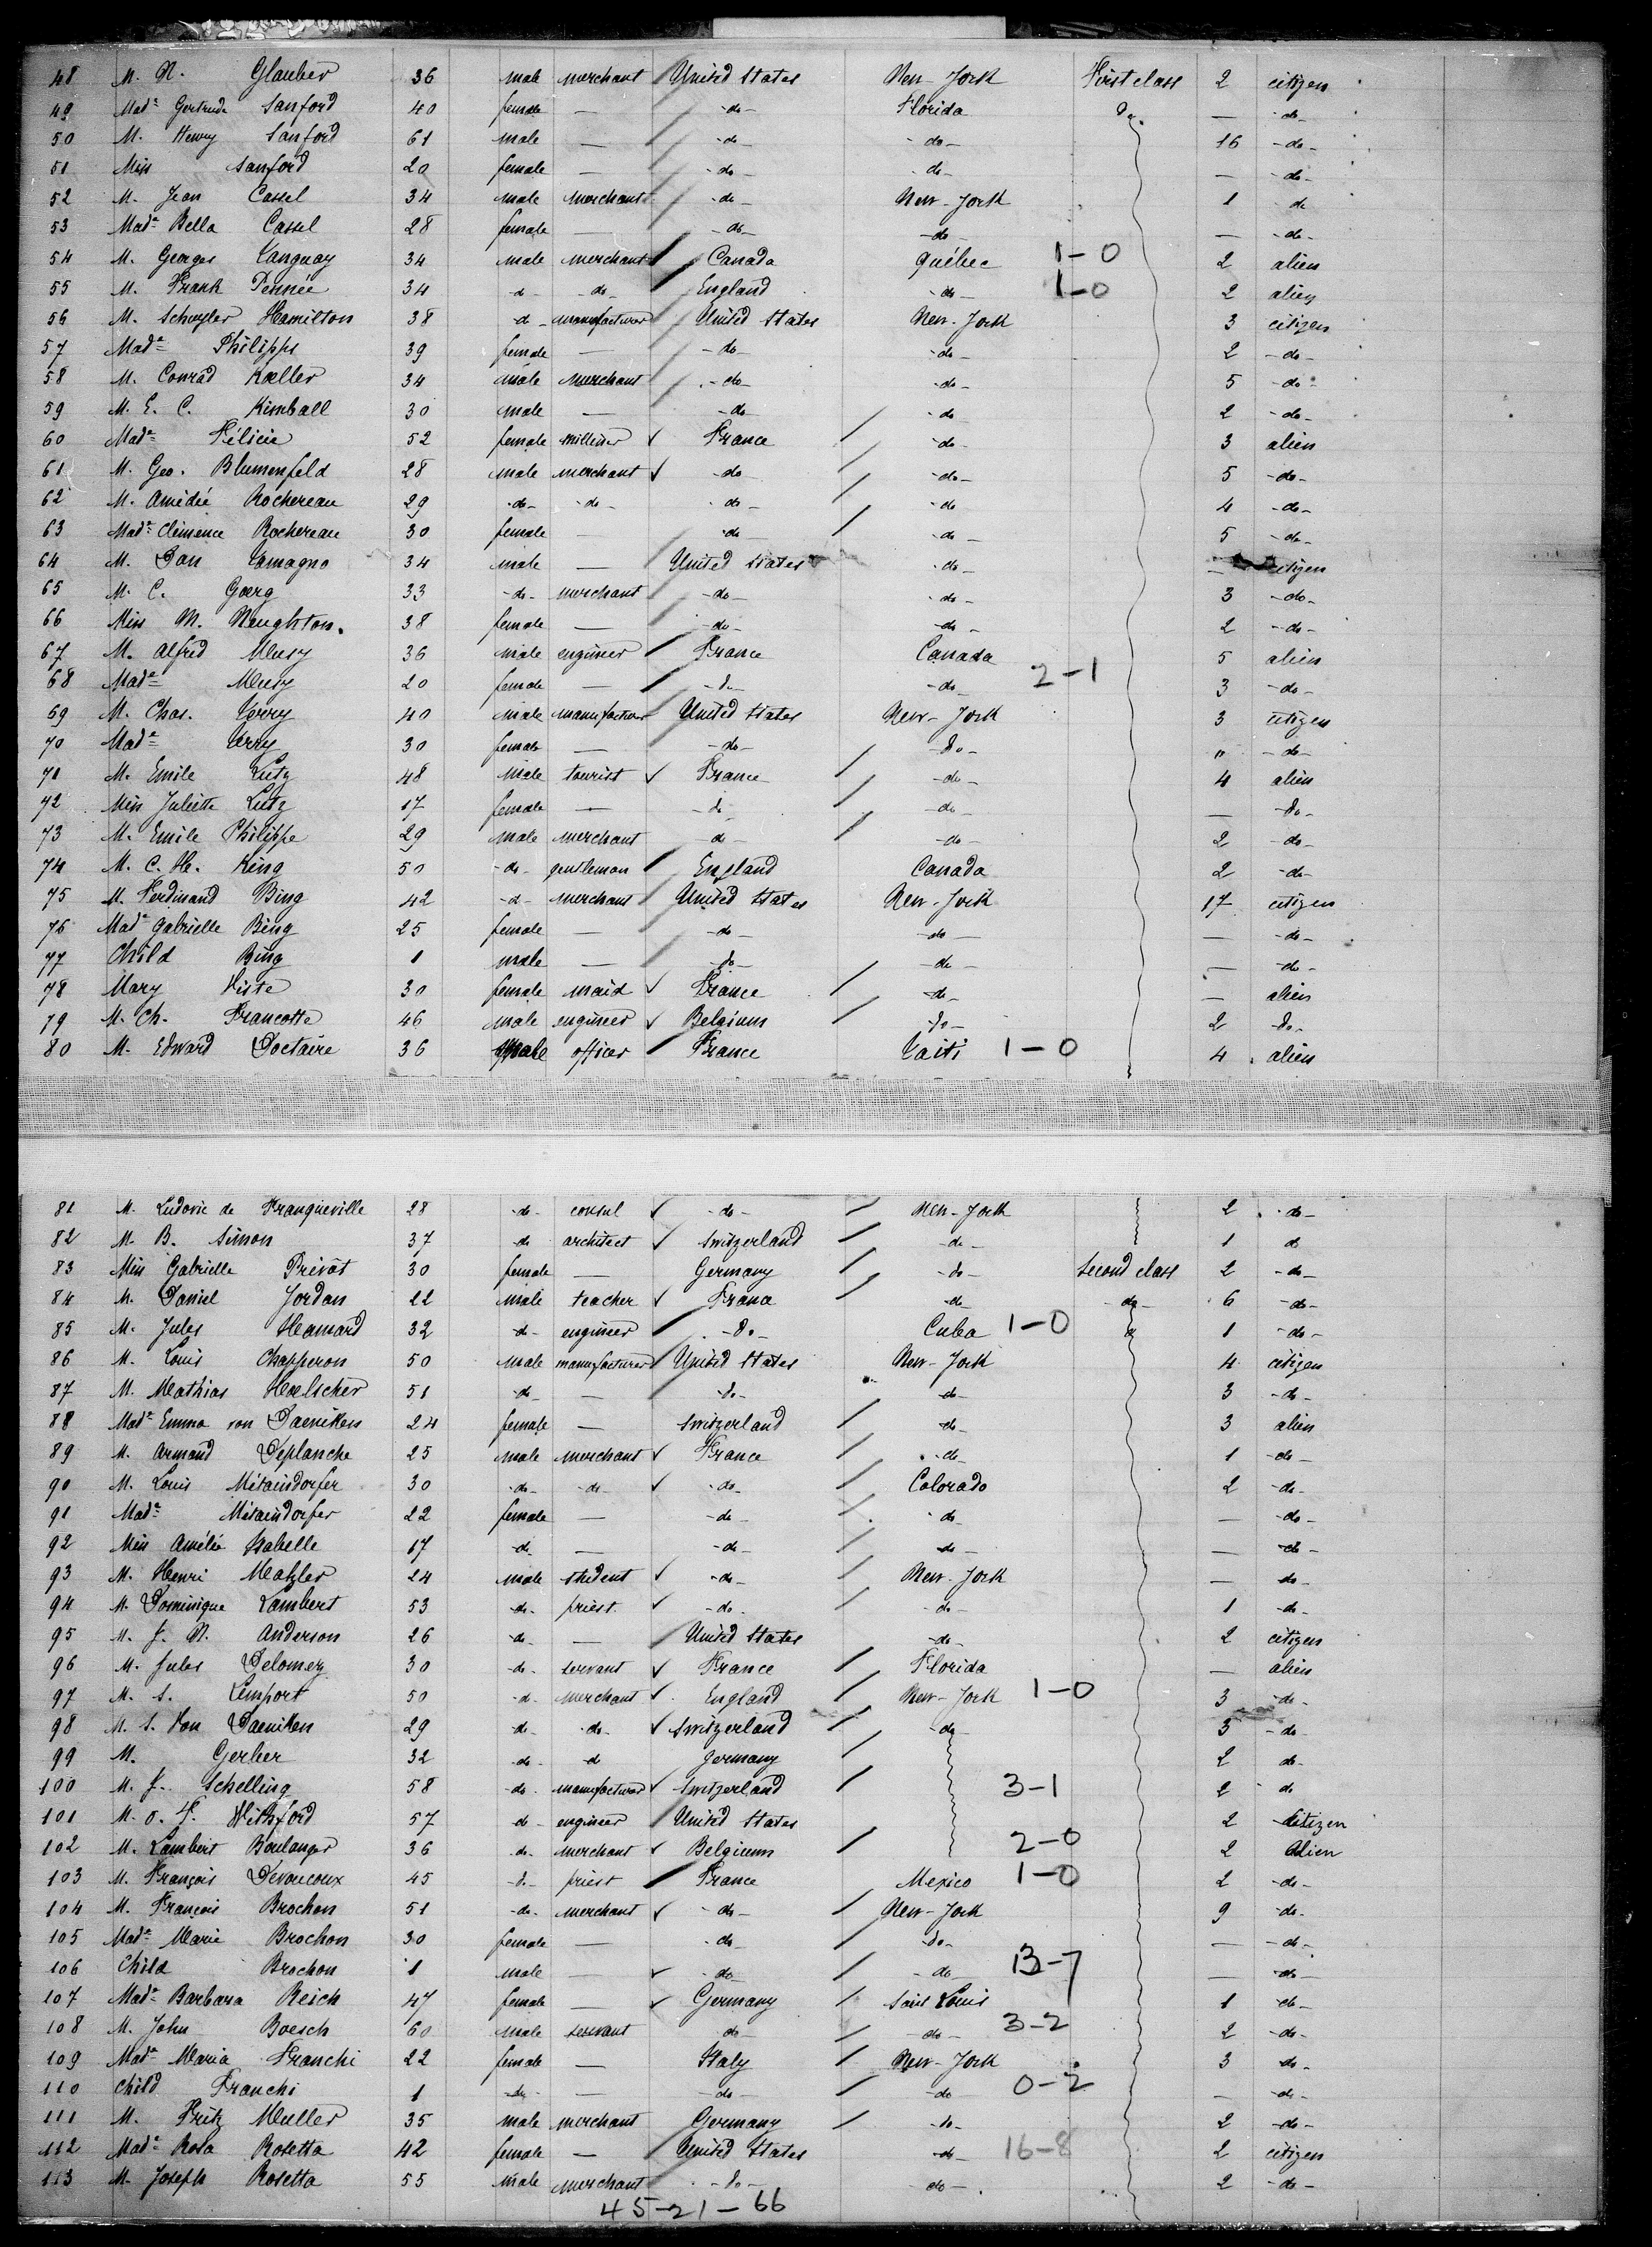 48 M. N. Glauber 36 male merchant United States New-York First class 2 citizen
49 Madᵉ Gertrude Sanford 40 female — -do- Florida do — -do-
50 M. Henry Sanford 61 male — -do- -do- 16 -do-
51 Miss Sanford 20 female — -do- -do- — -do-
52 M. Jean Cassel 34 male merchant -do- New-York 1 -do
53 Madᵉ Bella Cassel 28 female — -do- -do — -do-
54 M. Georges Tanguay 34 male merchant Canada Québec 1-0 2 alien
55 M. Frank Pennée 34 -d- -do- England -do- 1-0 2 alien
56 M. Schuyler Hamilton 38 -d- manufacturer United States New-York 3 citizen
57 Madᵉ Philipps 39 female — -do- -do- 2 -do-
58 M. Conrad Kœller 34 male merchant -do- -do- 5 -do-
59 M. E. C. Kimball 30 male — -do -do 2 -do-
60 Madᵉ Félicie 52 female milliner France -do- 3 alien
61 M. Geo. Blumenfeld 28 male merchant -do -do- 5 -do-
62 M. Amédée Rochereau 29 -do- -do- -do -do 4 -do-
63 Madᵉ Clémence Rochereau 30 female — -do -do- 5 -do-
64 M. Dan 34 male — United States -do- — citizen
65 M. C. Goerg 33 -do- merchant -do- -do- 3 -do-
66 Miss M. Naughton. 38 female — -do- -do- 2 -do-
67 M. Alfred 36 male engineer France Canada 5 alien
68 Madᵉ 20 female — -do- -do- 2-1 3 -do-
69 M. Chas. 40 male manufacturer United States New-York 3 citizen
70 Madᵉ 30 female — -do- -do- " -do-
71 M. Emile Lutz 48 male tourist France -do- 4 alien
72 Miss Juliette Lutz 17 female — -do -do- — -do-
73 M. Emile Philippe 29 male merchant -do -do- 2 -do-
74 M. C. H. King 50 -do- gentleman England Canada 2 -do-
75 M. Ferdinand Bing 42 -d- merchant United States New-York 17 citizen
76 Madᵉ Gabrielle Bing 25 female — -do- -do- — -do-
77 Child Bing 1 male — -do- -do- — -do-
78 Mary 30 female maid France -do- — alien
79 M. Ch. Francotte 46 male engineer Belgium -do- 2 -do-
80 M. Edward Doctaire 36 male officer France Haïti 1-0 4 alien
81 M. Ludovic de Franqueville 28 -do- consul -do- New-York 2 -do-
82 M. B. Simon 37 -do architect Switzerland -do- 1 do
83 Miss Gabrielle Privat 30 female — Germany -do- Second class 2 -do-
84 M. Daniel Jordan 22 male teacher France -do- -do- 6 -do-
85 M. Jules Hamard 32 -d- engineer -do- Cuba 1-0 d 1 -do-
86 M. Louis Chapperon 50 male manufacturer United States New-York 4 citizen
87 M. Mathias Hœlscher 51 -do — -do- -do- 3 -do-
88 Madᵉ Emma von Daeniken 24 female — Switzerland -do 3 alien
89 M. Armand Deplanche 25 male merchant France -do- 1 -do-
90 M. Louis 30 -do- -do- -do- Colorado 2 -do-
91 Madᵉ 22 female — -do- -do — -do-
92 Miss Amélie Isabelle 17 -do- — -do- -do- — -do-
93 M. Henri Matzler 24 male student -do- New-York — do-
94 M. Dominique Lambert 53 -do- priest -do- -do- 1 -do-
95 M. J. N. Anderson 26 -do- — United States -do- 2 citizen
96 M. Jules Delomez 30 -do- servant France Florida — alien
97 M. S. Lemport 50 -d- merchant England New-York 1-0 3 -do-
98 M. S. Von Daeniken 29 -do- -do- Switzerland -do 3 -do
99 M. Gerber 32 -do- -d Germany 2 do-
100 M. J. Schelling 58 -do- manufacturer Switzerland 3-1 2 do
101 M. O. F. 57 -do- engineer United States 2 citizen
102 M. Lambert Boulanger 36 -do- merchant Belgium 2-0 2 Alien
103 M. François Devoucoux 45 -do- priest France Mexico 1-0 2 -do-
104 M. François Brochon 51 -do- merchant -do- New-York 9 -do-
105 Madᵉ Marie Brochon 30 female — -do -do- — -do-
106 Child Brochon 1 male — -do -do 13-7 — -do-
107 Madᵉ Barbara Reich 47 female — Germany Saint Louis 1 -do-
108 M. John Boesch 60 male servant do -do- 3-2 2 -do-
109 Madᵉ Maria Franchi 22 female — Italy New-York 3 do-
110 Child Franchi 1 -do- — -do- -do 0-2 — -do-
111 M. Fritz Muller 35 male merchant Germany -do- 2 -do-
112 Madᵉ Rosa Rosetta 42 female — United States -do- 16-8 2 citizen
113 M. Joseph Rosetta 55 male merchant -do- -do- 2 -do-
45-21-66